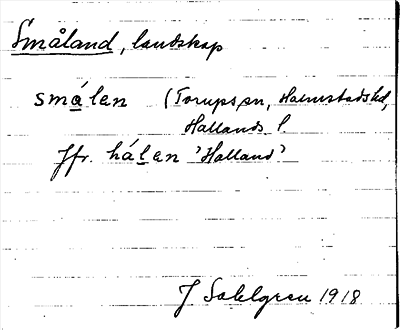 Småland, landskap
smálen (Torups sn, Halmstads hd,
Hallands l.
Jfr. hálen 'Halland'
J Sahlgren 1918